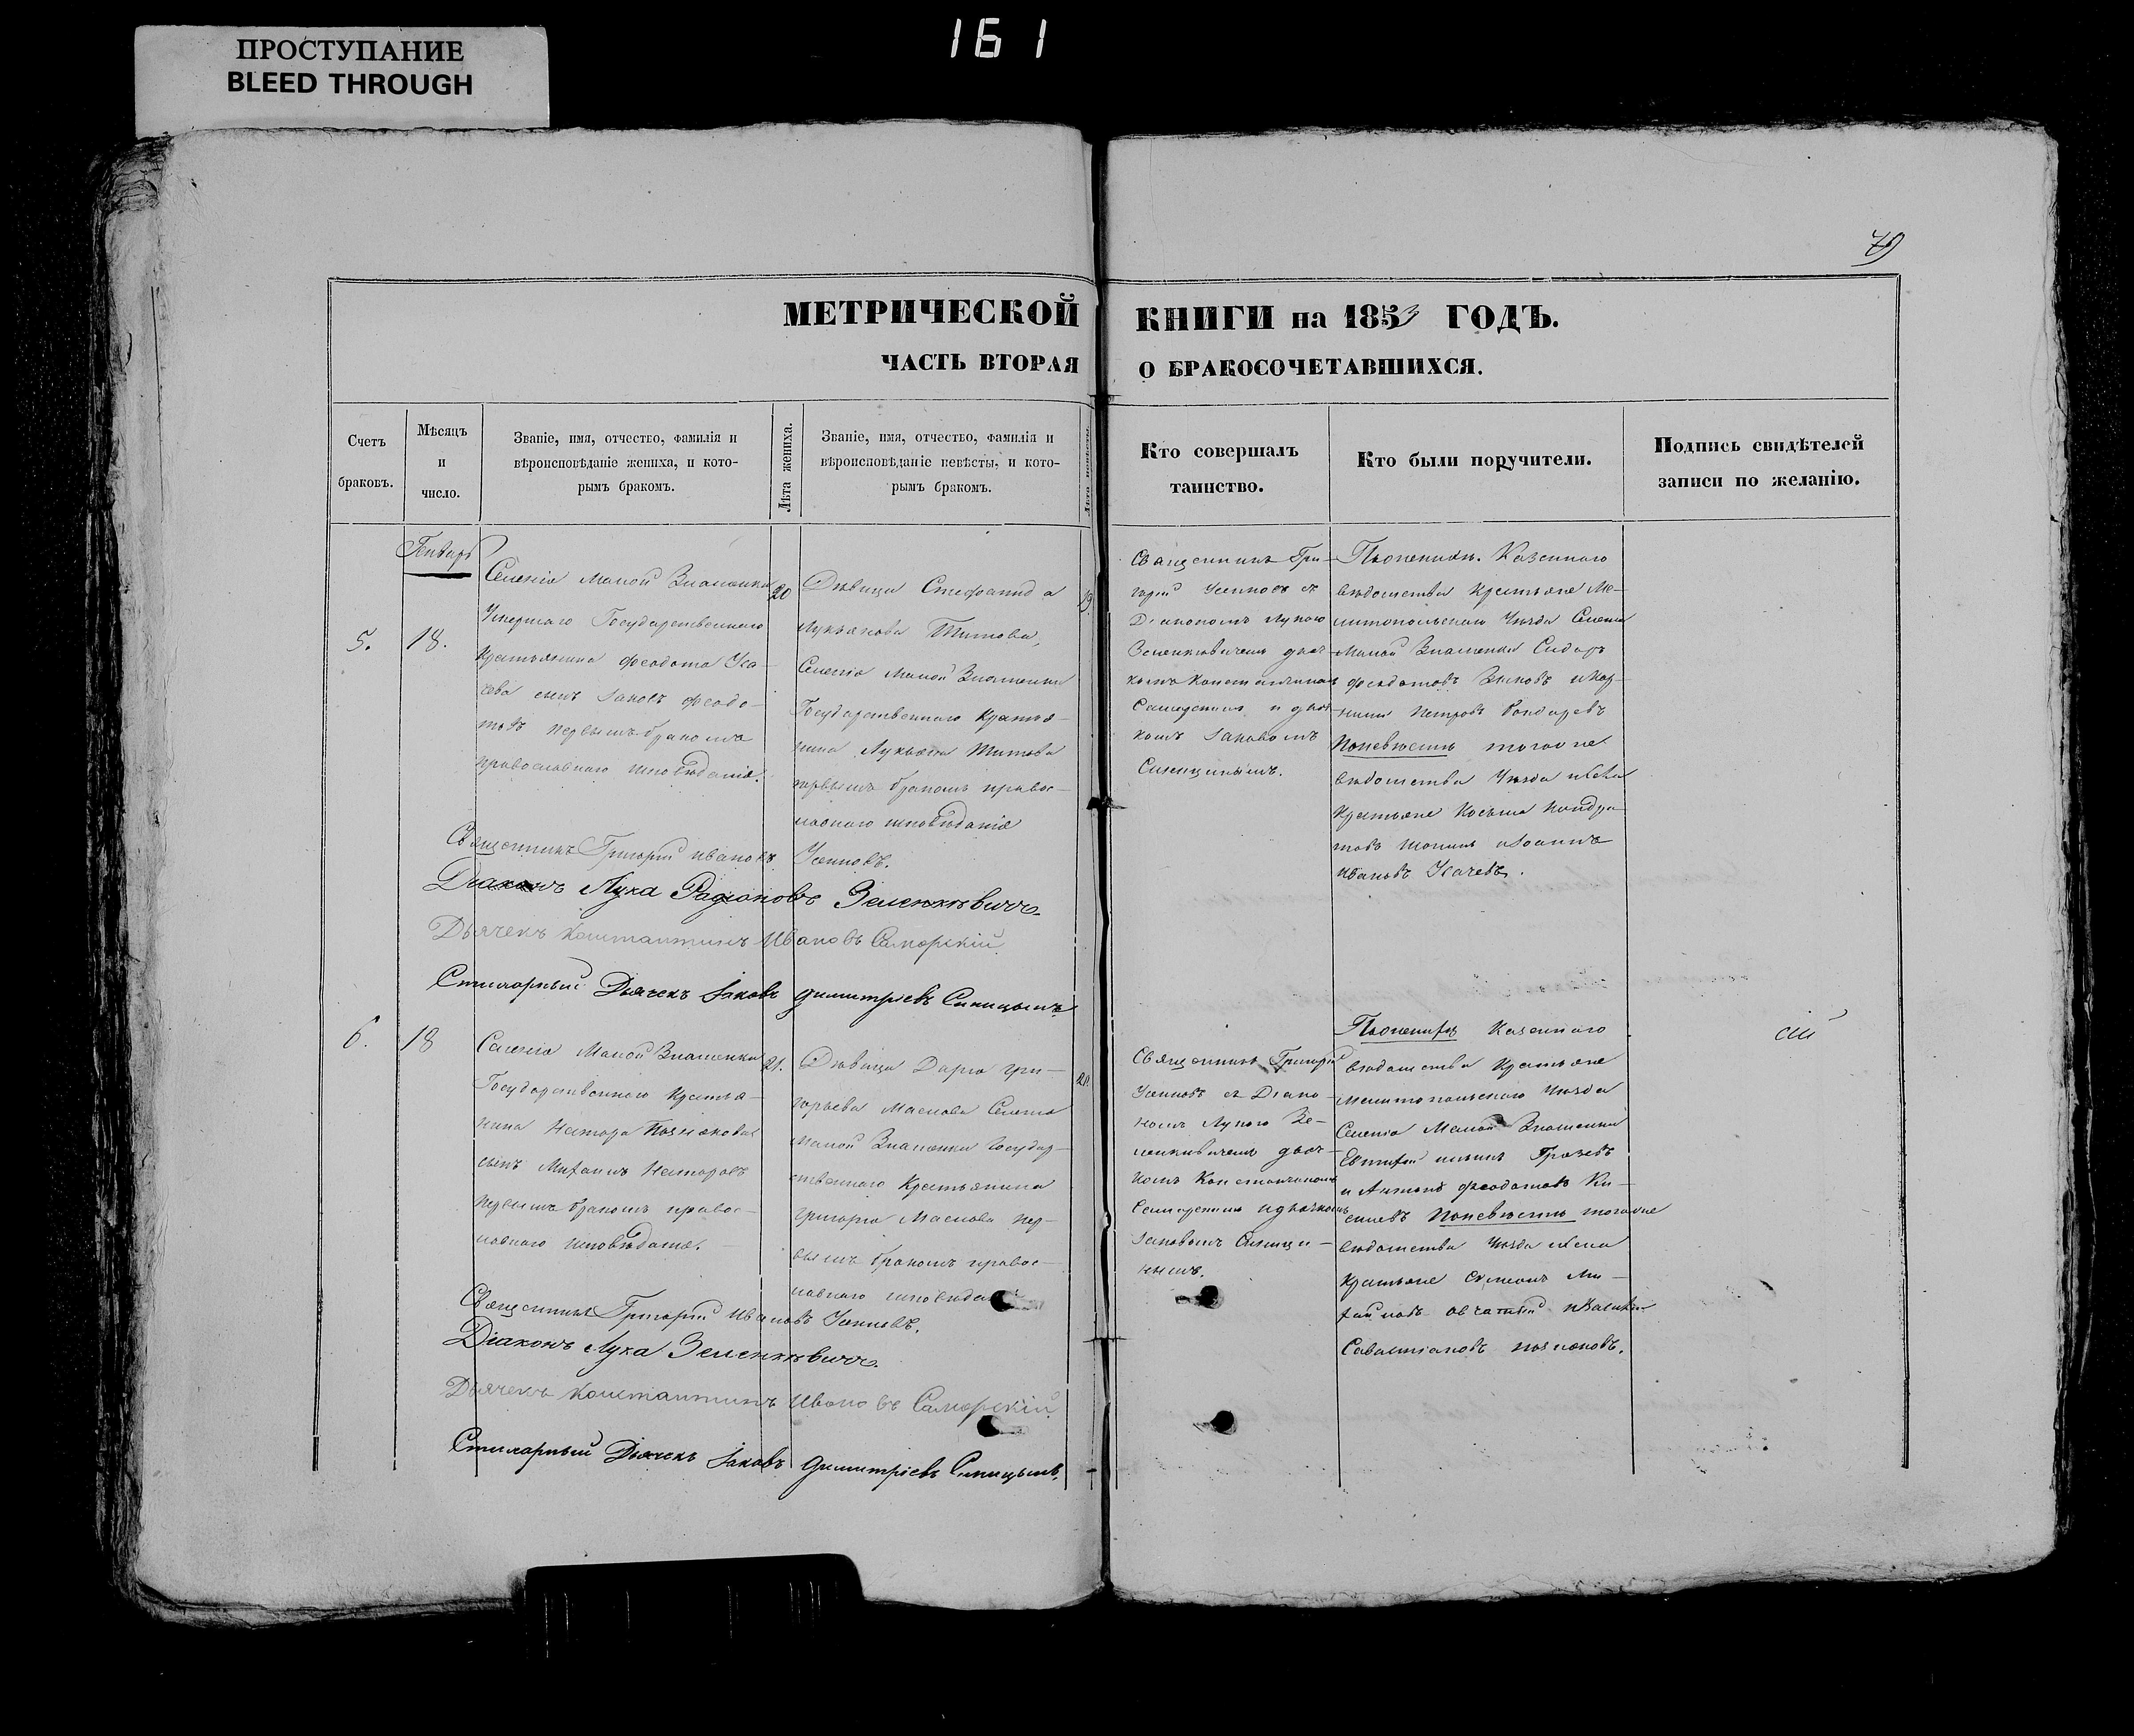 ПРОСТУПАНИЕ
BLEED THROUGH
161
79
МЕТРИЧЕСКОЙ КНИГИ на 1853 ГОДЪ.
ЧАСТЬ ВТОРАЯ О БРАКОСОЧЕТАВШИХСЯ.
Счетъ браковъ.
Мѣсяцъ и число.
Званіе, имя, отчество, фамилія и
вѣроисповѣданіе жениха, и кото-
рымъ бракомъ.
Лѣта жениха.
Званіе, имя, отчество, фамилія и
вѣроисповѣданіе невѣсты, и кото-
рымъ бракомъ.
Лѣта невѣсты.
Кто совершалъ
таинство.
Кто были поручители.
Подпись свидѣтелей
записи по желанію.
Январь
5.
18.
Селенія Малой Знаменки
Умершаго Государственнаго
Крестьянина Феодота Уса-
чева сынъ Іаковъ Феодо-
товъ первымъ бракомъ
православнаго исповѣданія.
20
Дѣвица Стефанида
Лукьянова Титова,
Селенія Малой Знаменки
Государственнаго Крестья-
нина Лукьяна Титова
первымъ бракомъ правос-
лавнаго исповѣданія
19.
Священникъ Гри-
горій Усиновъ съ
Діакономъ Лукою
Зеленкѣвичемъ дьяч-
комъ Константиномъ
Саморскимъ и дьяч-
комъ Іаковомъ
Синицынымъ.
Казеннаго
вѣдомства Крестьяне Ме-
литопольскаго Уѣзда Селенія
Малой Знаменки Сидоръ
Феодотовъ Быковъ и Кор-
нилій Петровъ Бондаревъ
По невѣстѣ того же
вѣдомства Уѣзда и Села
Крестьяне Косьма Кондра-
товъ и Іоаннъ
Ивановъ Усачевъ.
Священникъ Григорій Ивановъ Усиновъ.
Діаконъ Лука Радіоновъ Зеленкѣвичъ.
Дьячекъ Константинъ Ивановъ Саморскій.
Стихарный Дьячекъ Іаковъ Димитріевъ Синицынъ.
6.
18
Селенія Малой Знаменки
Государственнаго Крестья-
нина Нестора Познякова
сынъ Михаилъ Несторовъ
первымъ бракомъ правос-
лавнаго исповѣданія.
21.
Дѣвица Дарія Гри-
горьева Маслова Селенія
Малой Знаменки Государ-
ственнаго Крестьянина
Григорія Маслова пер-
вымъ бракомъ правос-
лавнаго исповѣданія
21.
Священникъ Григорій
Усиновъ съ Діако-
номъ Лукою Зе-
ленкивичемъ дьяч-
комъ Константиномъ
Саморскимъ и дьячкомъ
Іаковомъ Синици-
нымъ.
По женихѣ Казеннаго
вѣдомства Крестьяне
Мелитопольскаго Уѣзда
Селенія Малой Знаменки
Евтифій
и Антонъ Феодотовъ Ки-
селевъ По невѣстѣ того же
вѣдомства Уѣзда и Села
Крестьяне Симеонъ Ми-
хайловъ
Савастіановъ Позняковъ.
Священникъ Григорій Ивановъ Усиновъ.
Діаконъ Лука Зеленкѣвичъ.
Дьячекъ Константинъ Ивановъ Саморскій.
Стихарный Дьячекъ Іаковъ Димитріевъ Синицынъ.